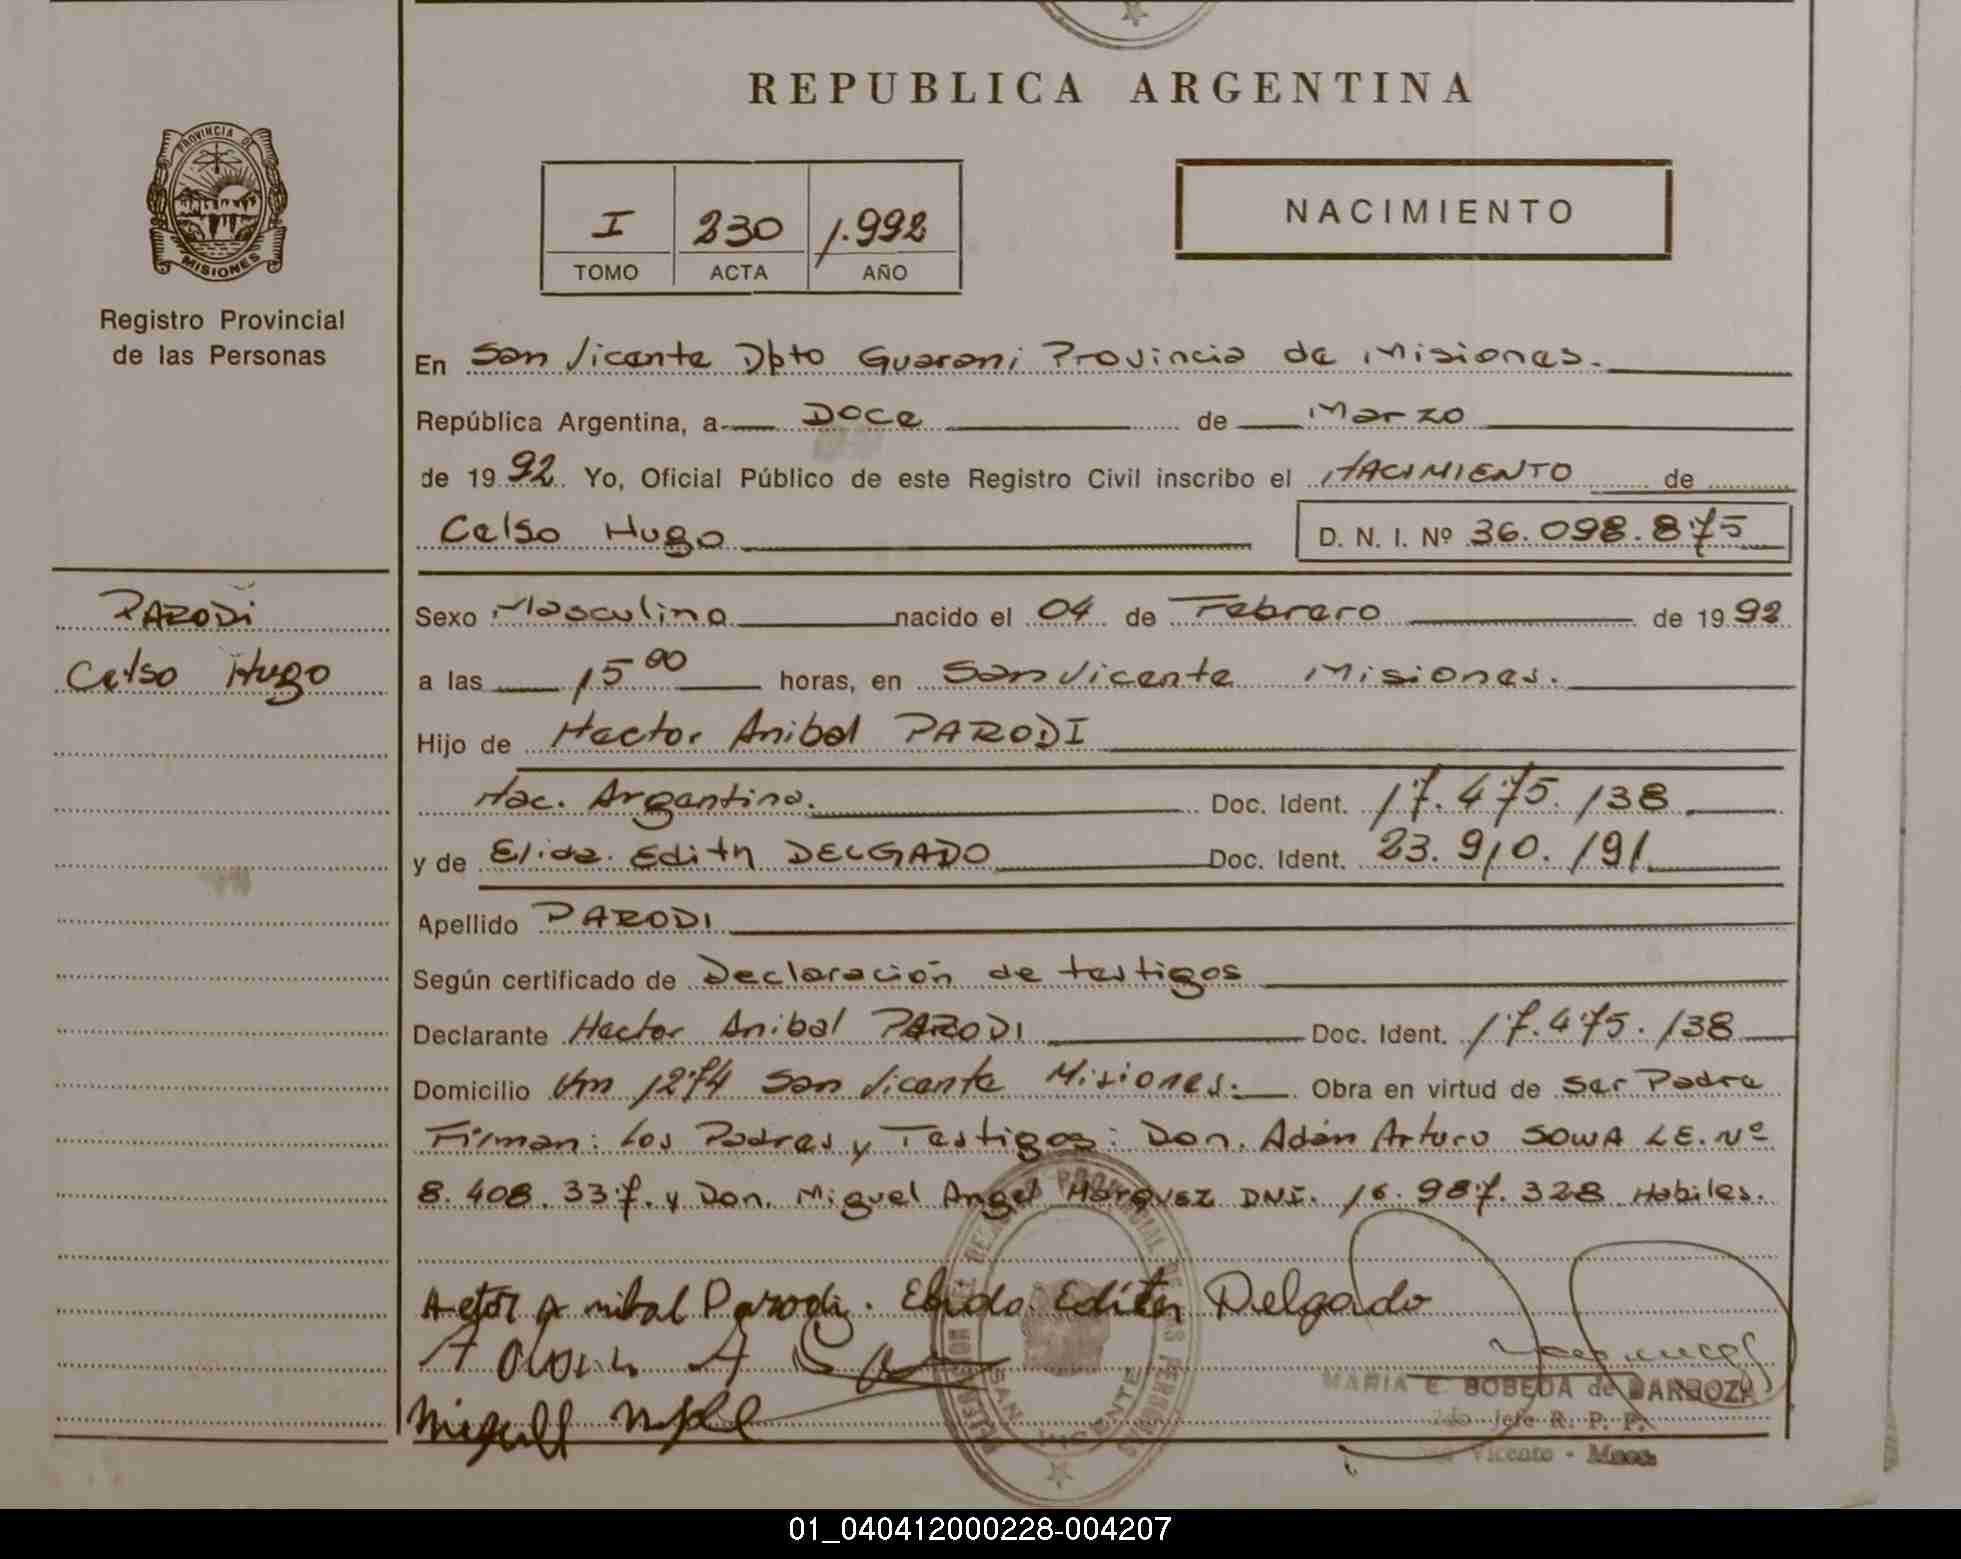 REPUBLICA ARGENTINA
PROVINCIA DE
MISIONES
I 230 1.992
TOMO ACTA AÑO
NACIMIENTO
Registro Provincial
de las Personas
En San Vicente Dpto Guarani Provincia de Misiones.
República Argentina, a Doce de Marzo
de 1992 Yo, Oficial Público de este Registro Civil inscribo el NACIMIENTO de
Celso Hugo D. N. I. Nº 36.098.875
PARODI
Celso Hugo
Sexo Masculino nacido el 04 de Febrero de 1992
a las 15⁰⁰ horas, en San Vicente Misiones.
Hijo de Hector Anibal PARODI
Nac. Argentina. Doc. Ident. 17.475.138
y de Elida Edith DELGADO Doc. Ident. 23.910.191
Apellido PARODI
Según certificado de Declaración de testigos
Declarante Hector Anibal PARODI Doc. Ident. 17.475.138
Domicilio Km 1274 San Vicente Misiones. Obra en virtud de ser Padre
Firman: Los Padres y Testigos: Don. Adán Arturo SOWA L.E. Nº
8.408.337. y Don. Miguel Angel Marquez DNI. 16.987.328 Habiles.
Parodi. Elida Edith Delgado
MARIA E. BOBEDA de BARBOZA
2do Jefe R. P. P.
San Vicente - Mnes.
SAN VICENTE
01_040412000228-004207